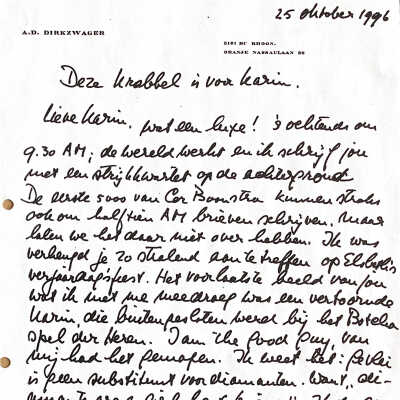 25 oktober 1996
A.D. DIRKZWAGER
3161 BC RHOON.
ORANJE NASSAULAAN 26
Deze krabbel is voor Karin.
Lieve Karin, wat een luxe! 's ochtends om
9.30 AM; de wereld werkt en ik schrijf jou
met een strijkkwartet op de achtergrond.
De eerste 5000 van Cor Boonstra kunnen straks
ook om half tien AM brieven schrijven, maar
laten we het daar niet over hebben. Ik was
verheugd je zo stralend aan te treffen op Elsbeth's
verjaardagsfeest. Het voorlaatste beeld van jou
wat ik met me meedroeg was een vertoornde
Karin, die buitengesloten werd bij het Botcha
spel der Heren. I am the good guy, van
mij had het gemogen. Ik weet het:
is geen substituut voor diamanten. Want, dia-